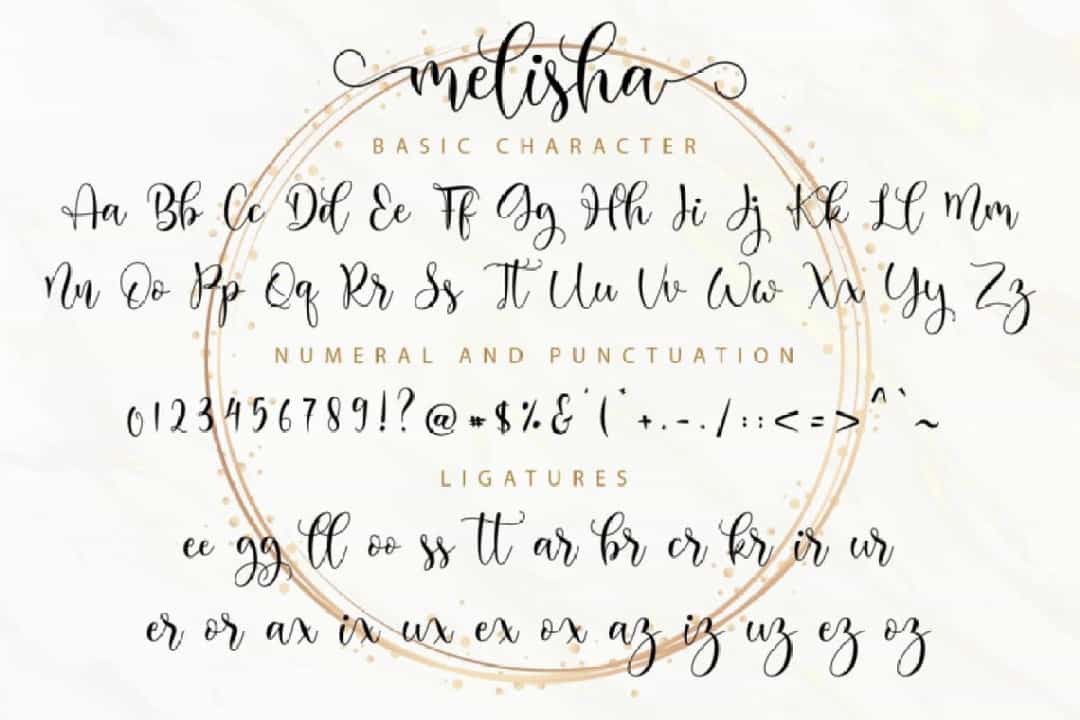 melisha
BASIC CHARACTER
Aa Bb Cc Dd Ee Ff Gg Hh Ii Jj Kk Ll Mm
Nn Oo Pp Qq Rr Ss Tt Uu Vv Ww Xx Yy Zz
NUMERAL AND PUNCTUATION
0123456789!?@#$%&'(*+.-./::<=>^`~
LIGATURES
ee gg ll oo ss tt ar br cr kr ir ur
er or ax ix ux ex ox az iz uz ez oz